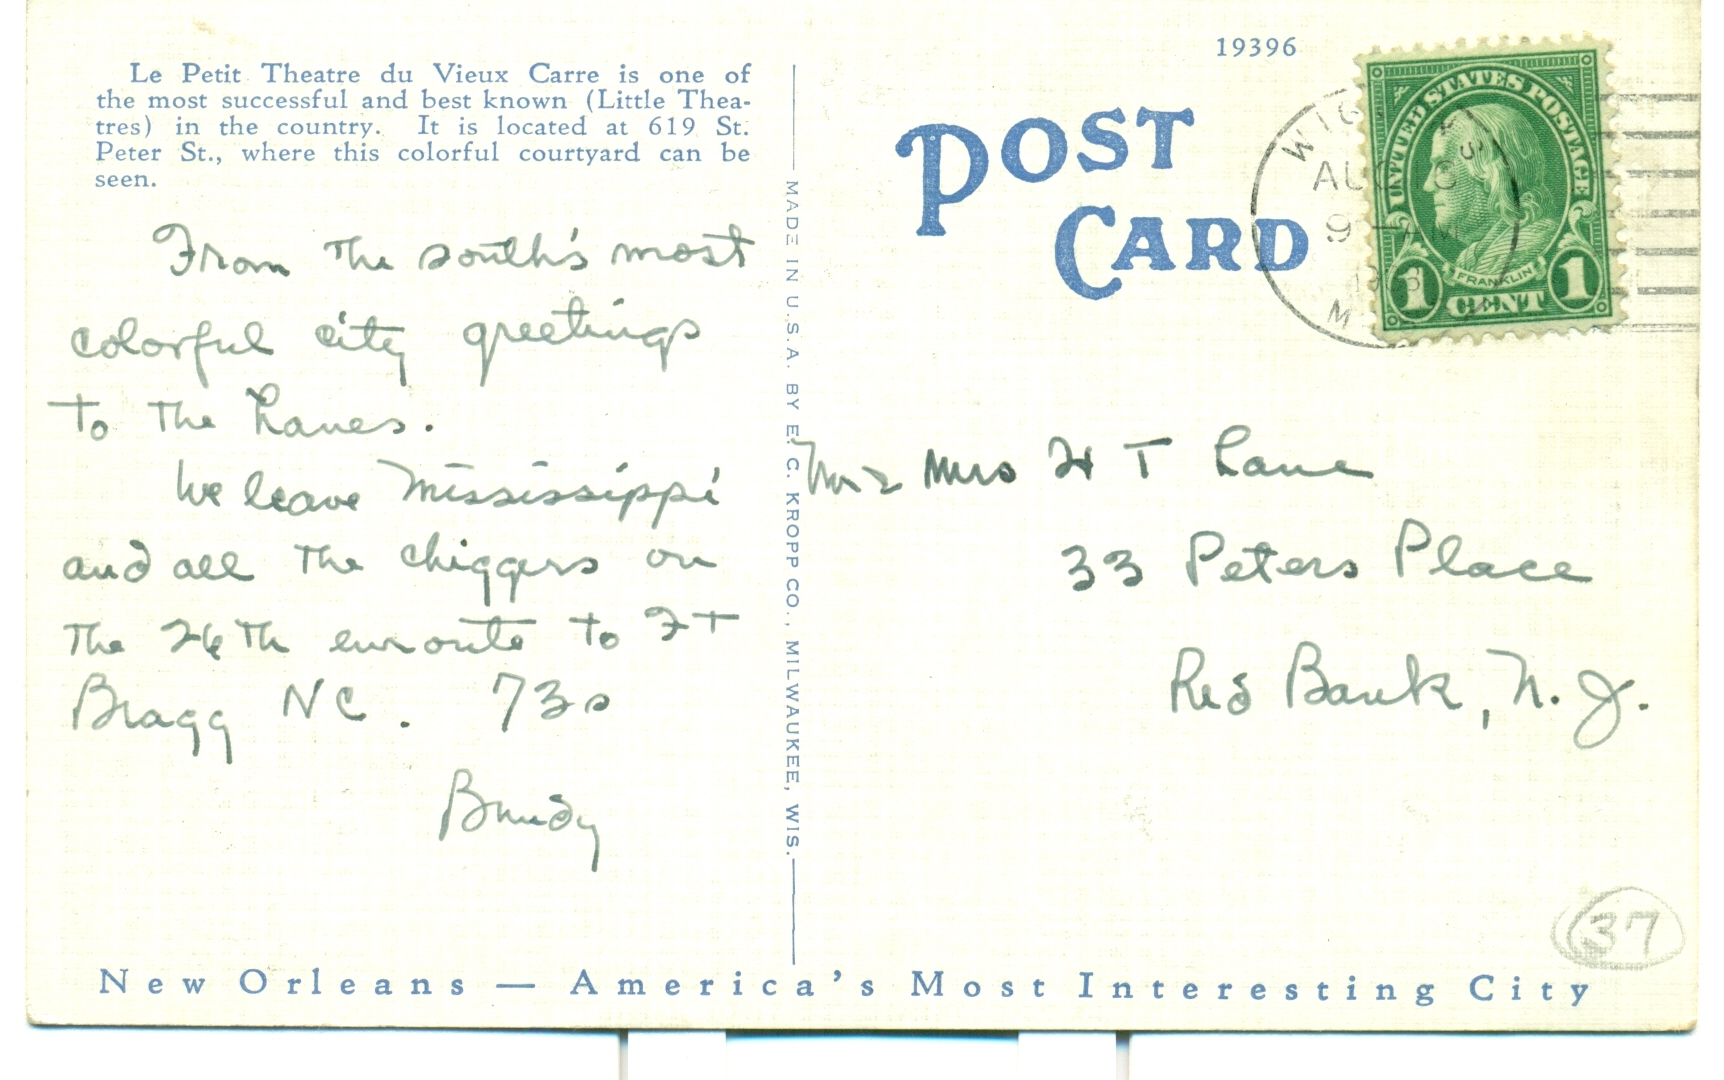 Le Petit Theatre du Vieux Carre is one of
the most successful and best known (Little Thea-
tres) in the country. It is located at 619 St.
Peter St., where this colorful courtyard can be
seen.
From the south's most
colorful city greetings
to the Lanes.
We leave Mississippi
and all the chiggers on
the 26th enroute to Ft
Bragg NC. 73s
MADE IN U.S.A. BY E. C. KROPP CO., MILWAUKEE, WIS.
19396
POST
CARD
WIG
AUG
9
M
UNITED STATES POSTAGE
FRANKLIN
1 CENT 1
Mr & Mrs H T Lane
33 Peters Place
Red Bank, N. J.
37
New Orleans — America's Most Interesting City